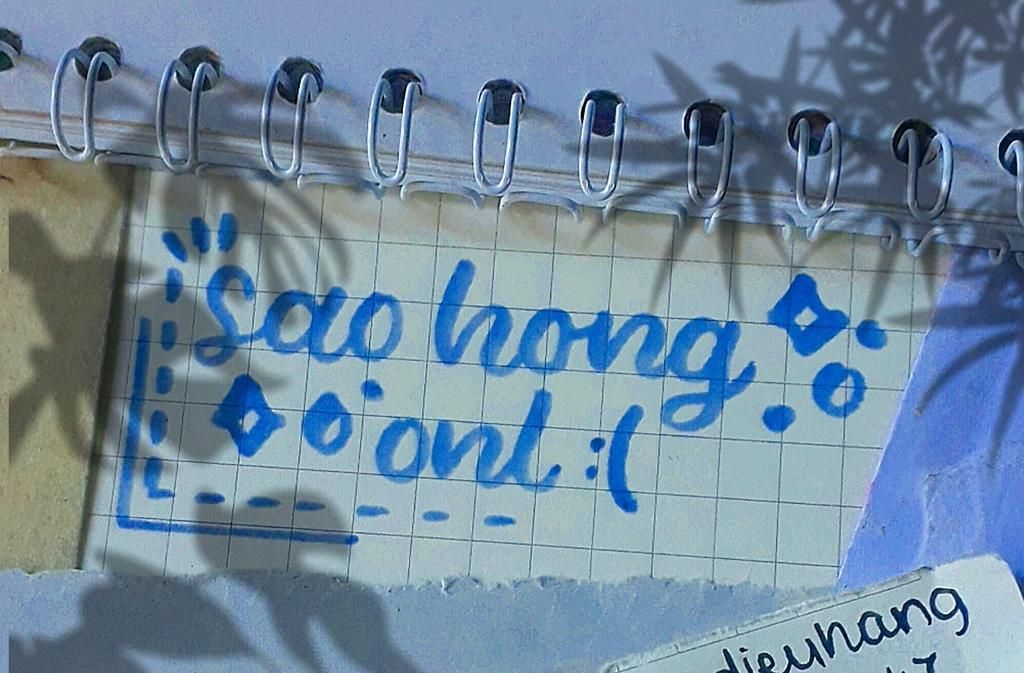 Sao hong
onl :(
dieuhang